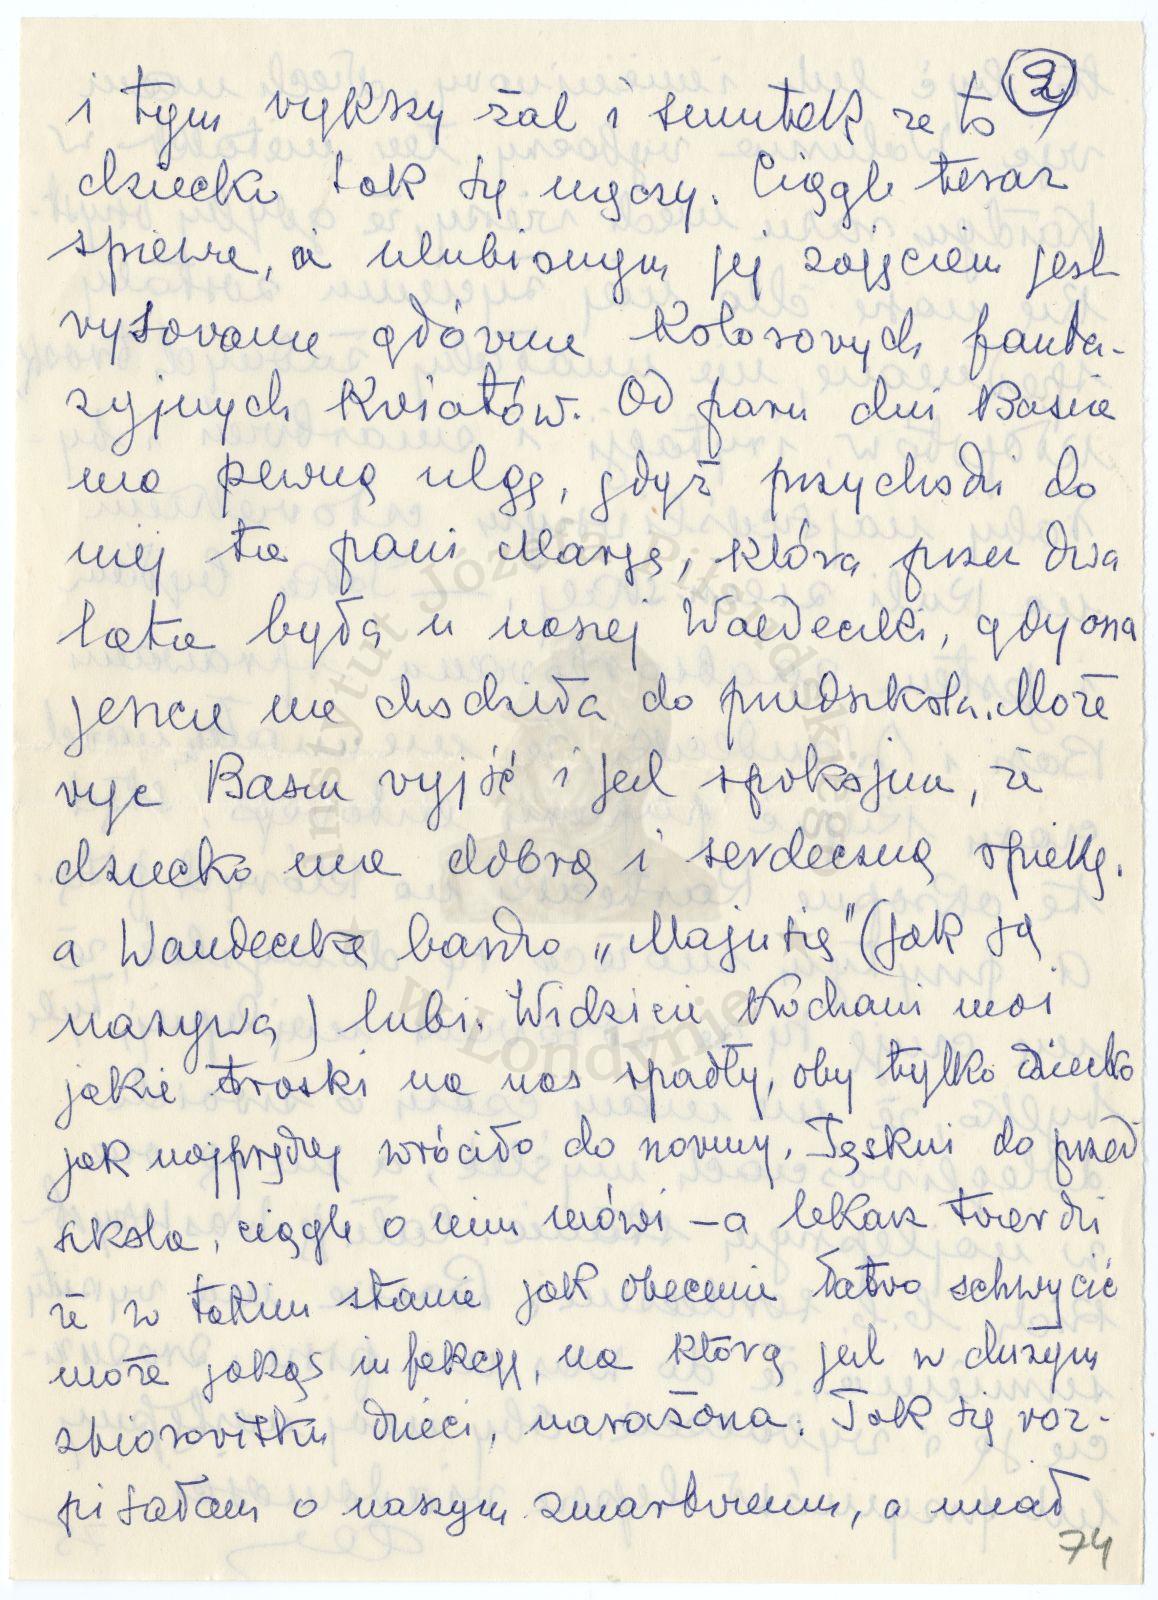 2
i tym większy żal i smutek że to
dziecko tak się męczy. Ciągle teraz
śpiewa, a ulubionym jej zajęciem jest
rysowanie głównie kolorowych fanta-
zyjnych kwiatów. Od paru dni Basia
ma pewną ulgę, gdyż przychodzi do
niej ta pani Marysia, która przez dwa
lata była u naszej Wandeczki, gdy ona
jeszcze nie chodziła do przedszkola. Może
więc Basia wyjść i jest spokojna, że
dziecko ma dobrą i serdeczną opiekę.
a Wandeczka bardzo „Majusię" (jak ją
nazywa) lubi. Widzicie Kochani moi
jakie troski na nas spadły, oby tylko dziecko
jak najprędzej wróciło do normy. Tęskni do przed
szkola, ciągle o nim mówi – a lekarz twierdzi
że w takim stanie jak obecnie łatwo schwycić
może jakąś infekcję, na którą jest w dużym
zbiorowisku dzieci, narażona. Tak się roz-
pisałam o naszym zmartwieniu, a miał
74
Instytut Józefa Piłsudskiego
w Londynie